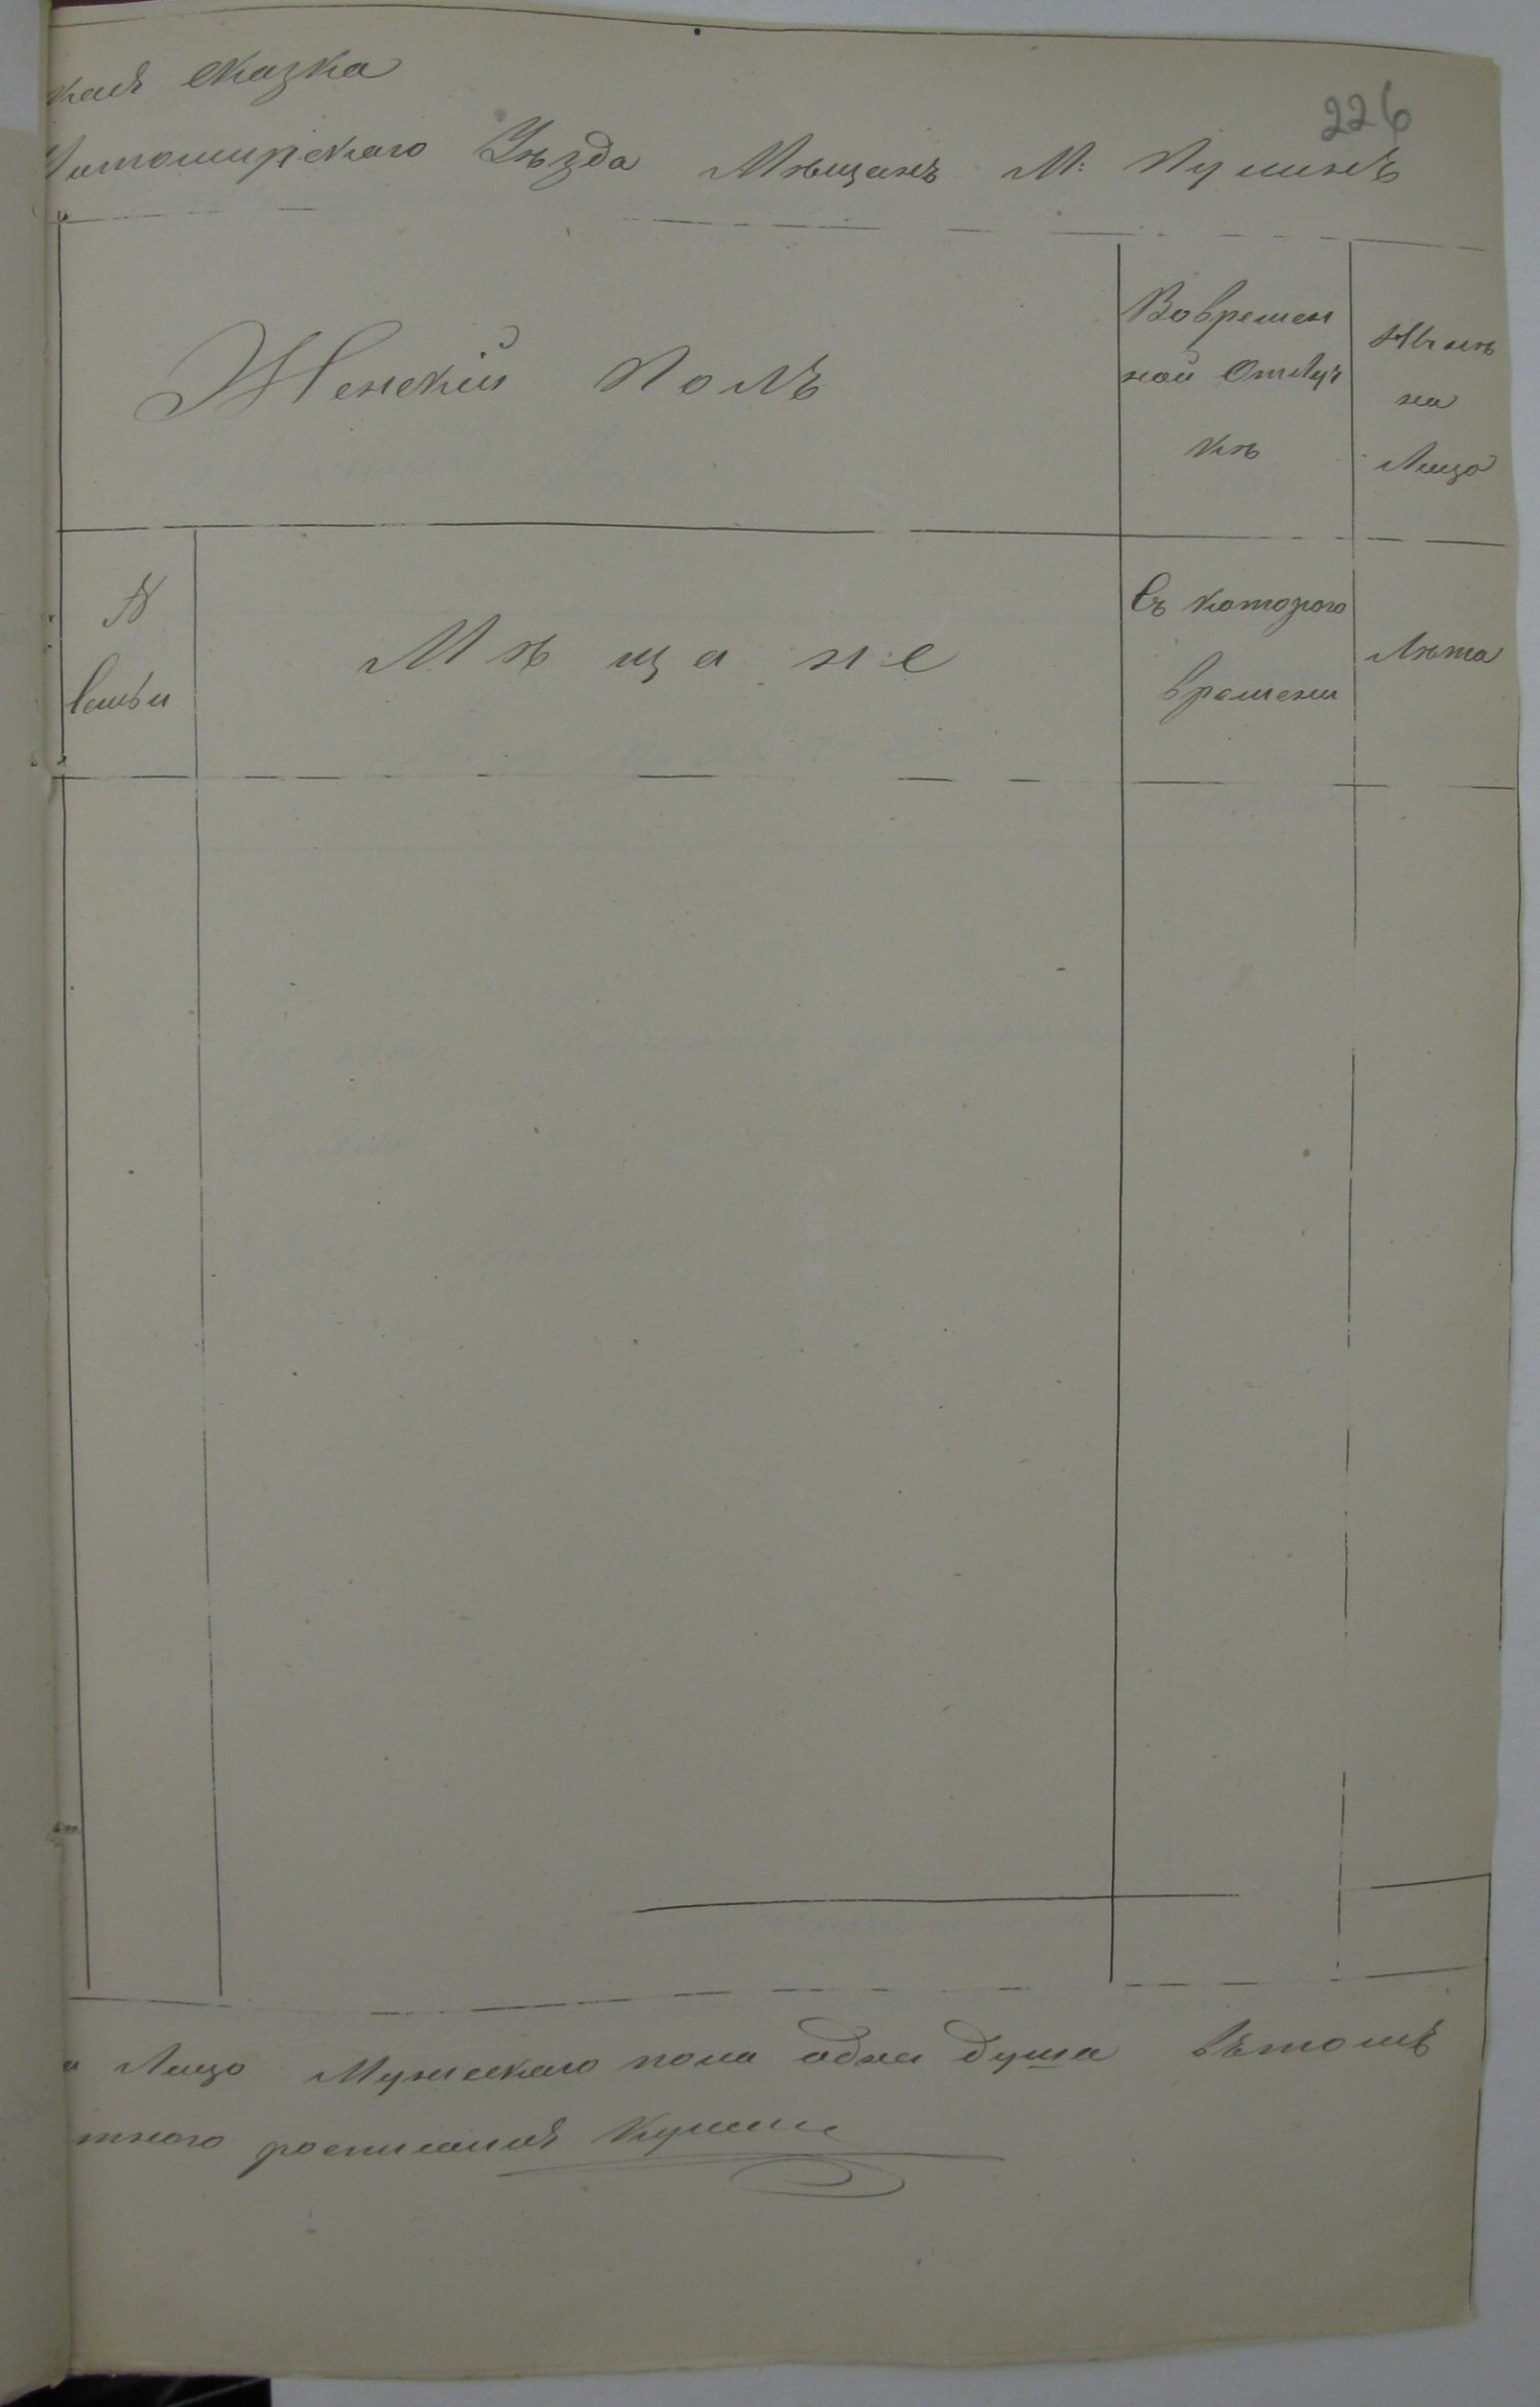 кая сказка
226
Житомирскаго Уѣзда Мѣщанъ М: Пулинъ
Женскій Полъ
Вовремен
ной Отлуч
кѣ
Нынѣ
на
Лицо
№
Семьи
Мѣщане
Съ которого
времени
Лѣта
а Лицо Мужескаго пола одна душа Вътомъ
тного росписался